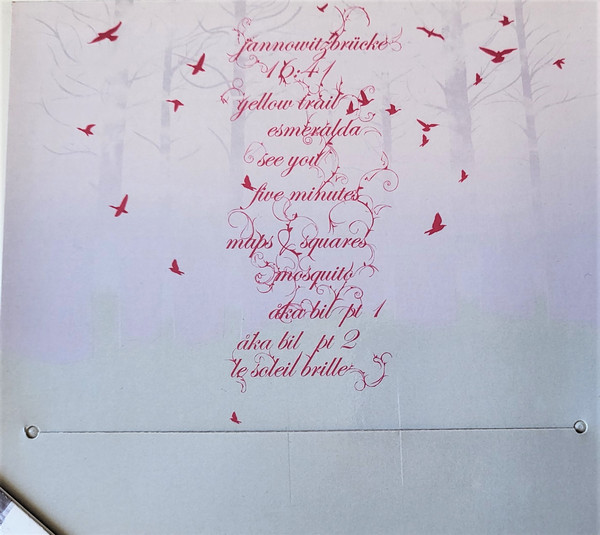 jannowitzbrücke
16:41
yellow trail
esmeralda
see you
five minutes
maps & squares
mosquito
åka bil pt 1
åka bil pt 2
le soleil brille